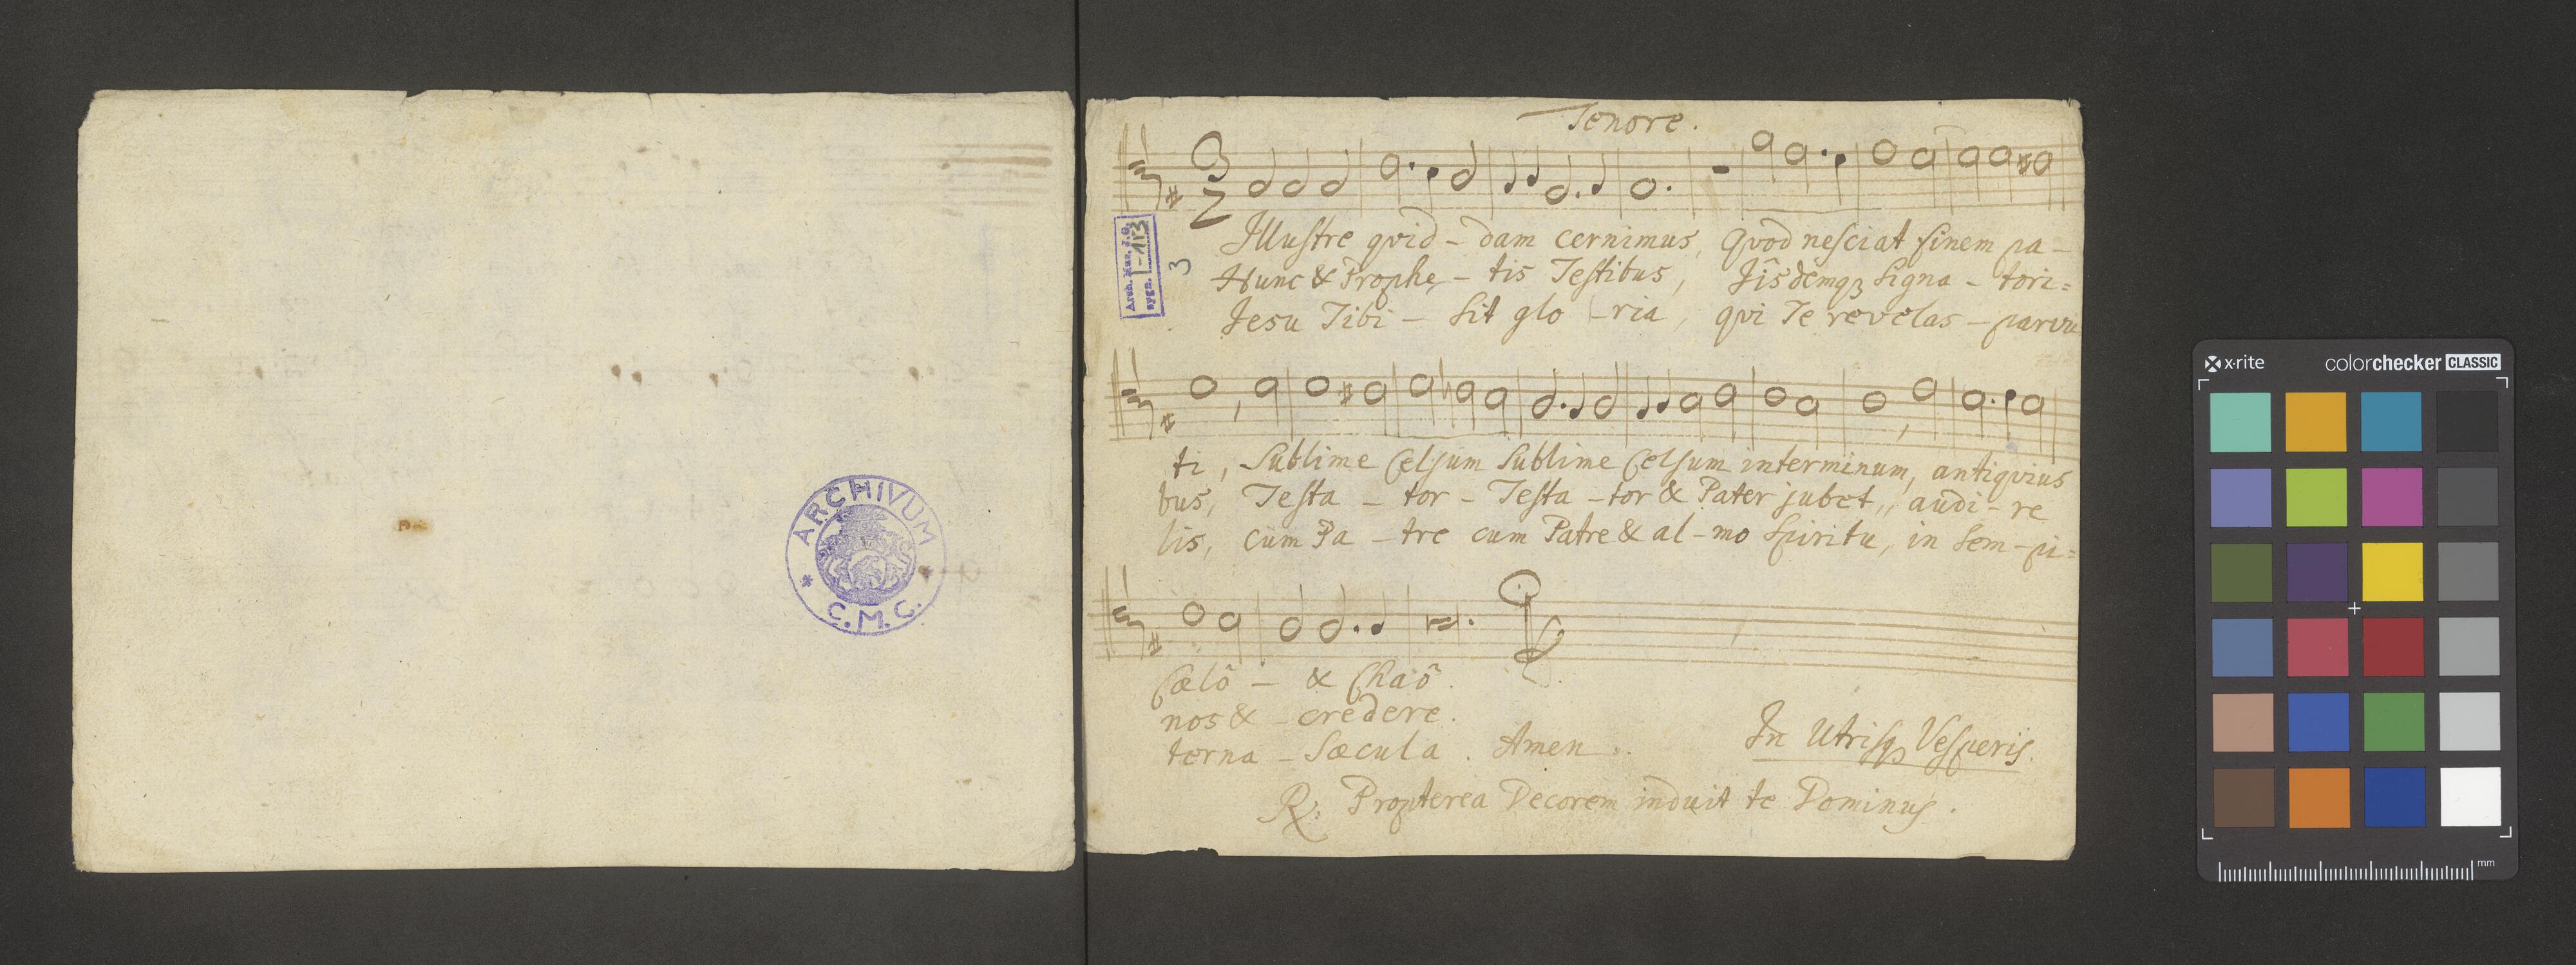 ARCHIVUM
* C.M.C. *
Tenore.
3
2
Illustre quid - dam cernimus, Quod nesciat finem pa-
Hunc & Prophe - tis Testibus, Jîsdemq3 signa - tori=
Jesu Tibi - sit glo - ria, qui Te revelas - parvu
Arch. Muz. J.G.
sygn. I-113
3
ti, Sublime Celsum Sublime Celsum interminum, antiquius
bus, Testa - tor - Testa - tor & Pater jubet,, audi - re
lis, cum Pa - tre cum Patre & al - mo Spiritu, in sem - pi=
Cælô - & Chaô.
nos & - credere.
terna - Sæcula. Amen..
In Utrisq Vesperis.
R: Propterea Decorem induit te Dominus.
x-rite
colorchecker CLASSIC
mm